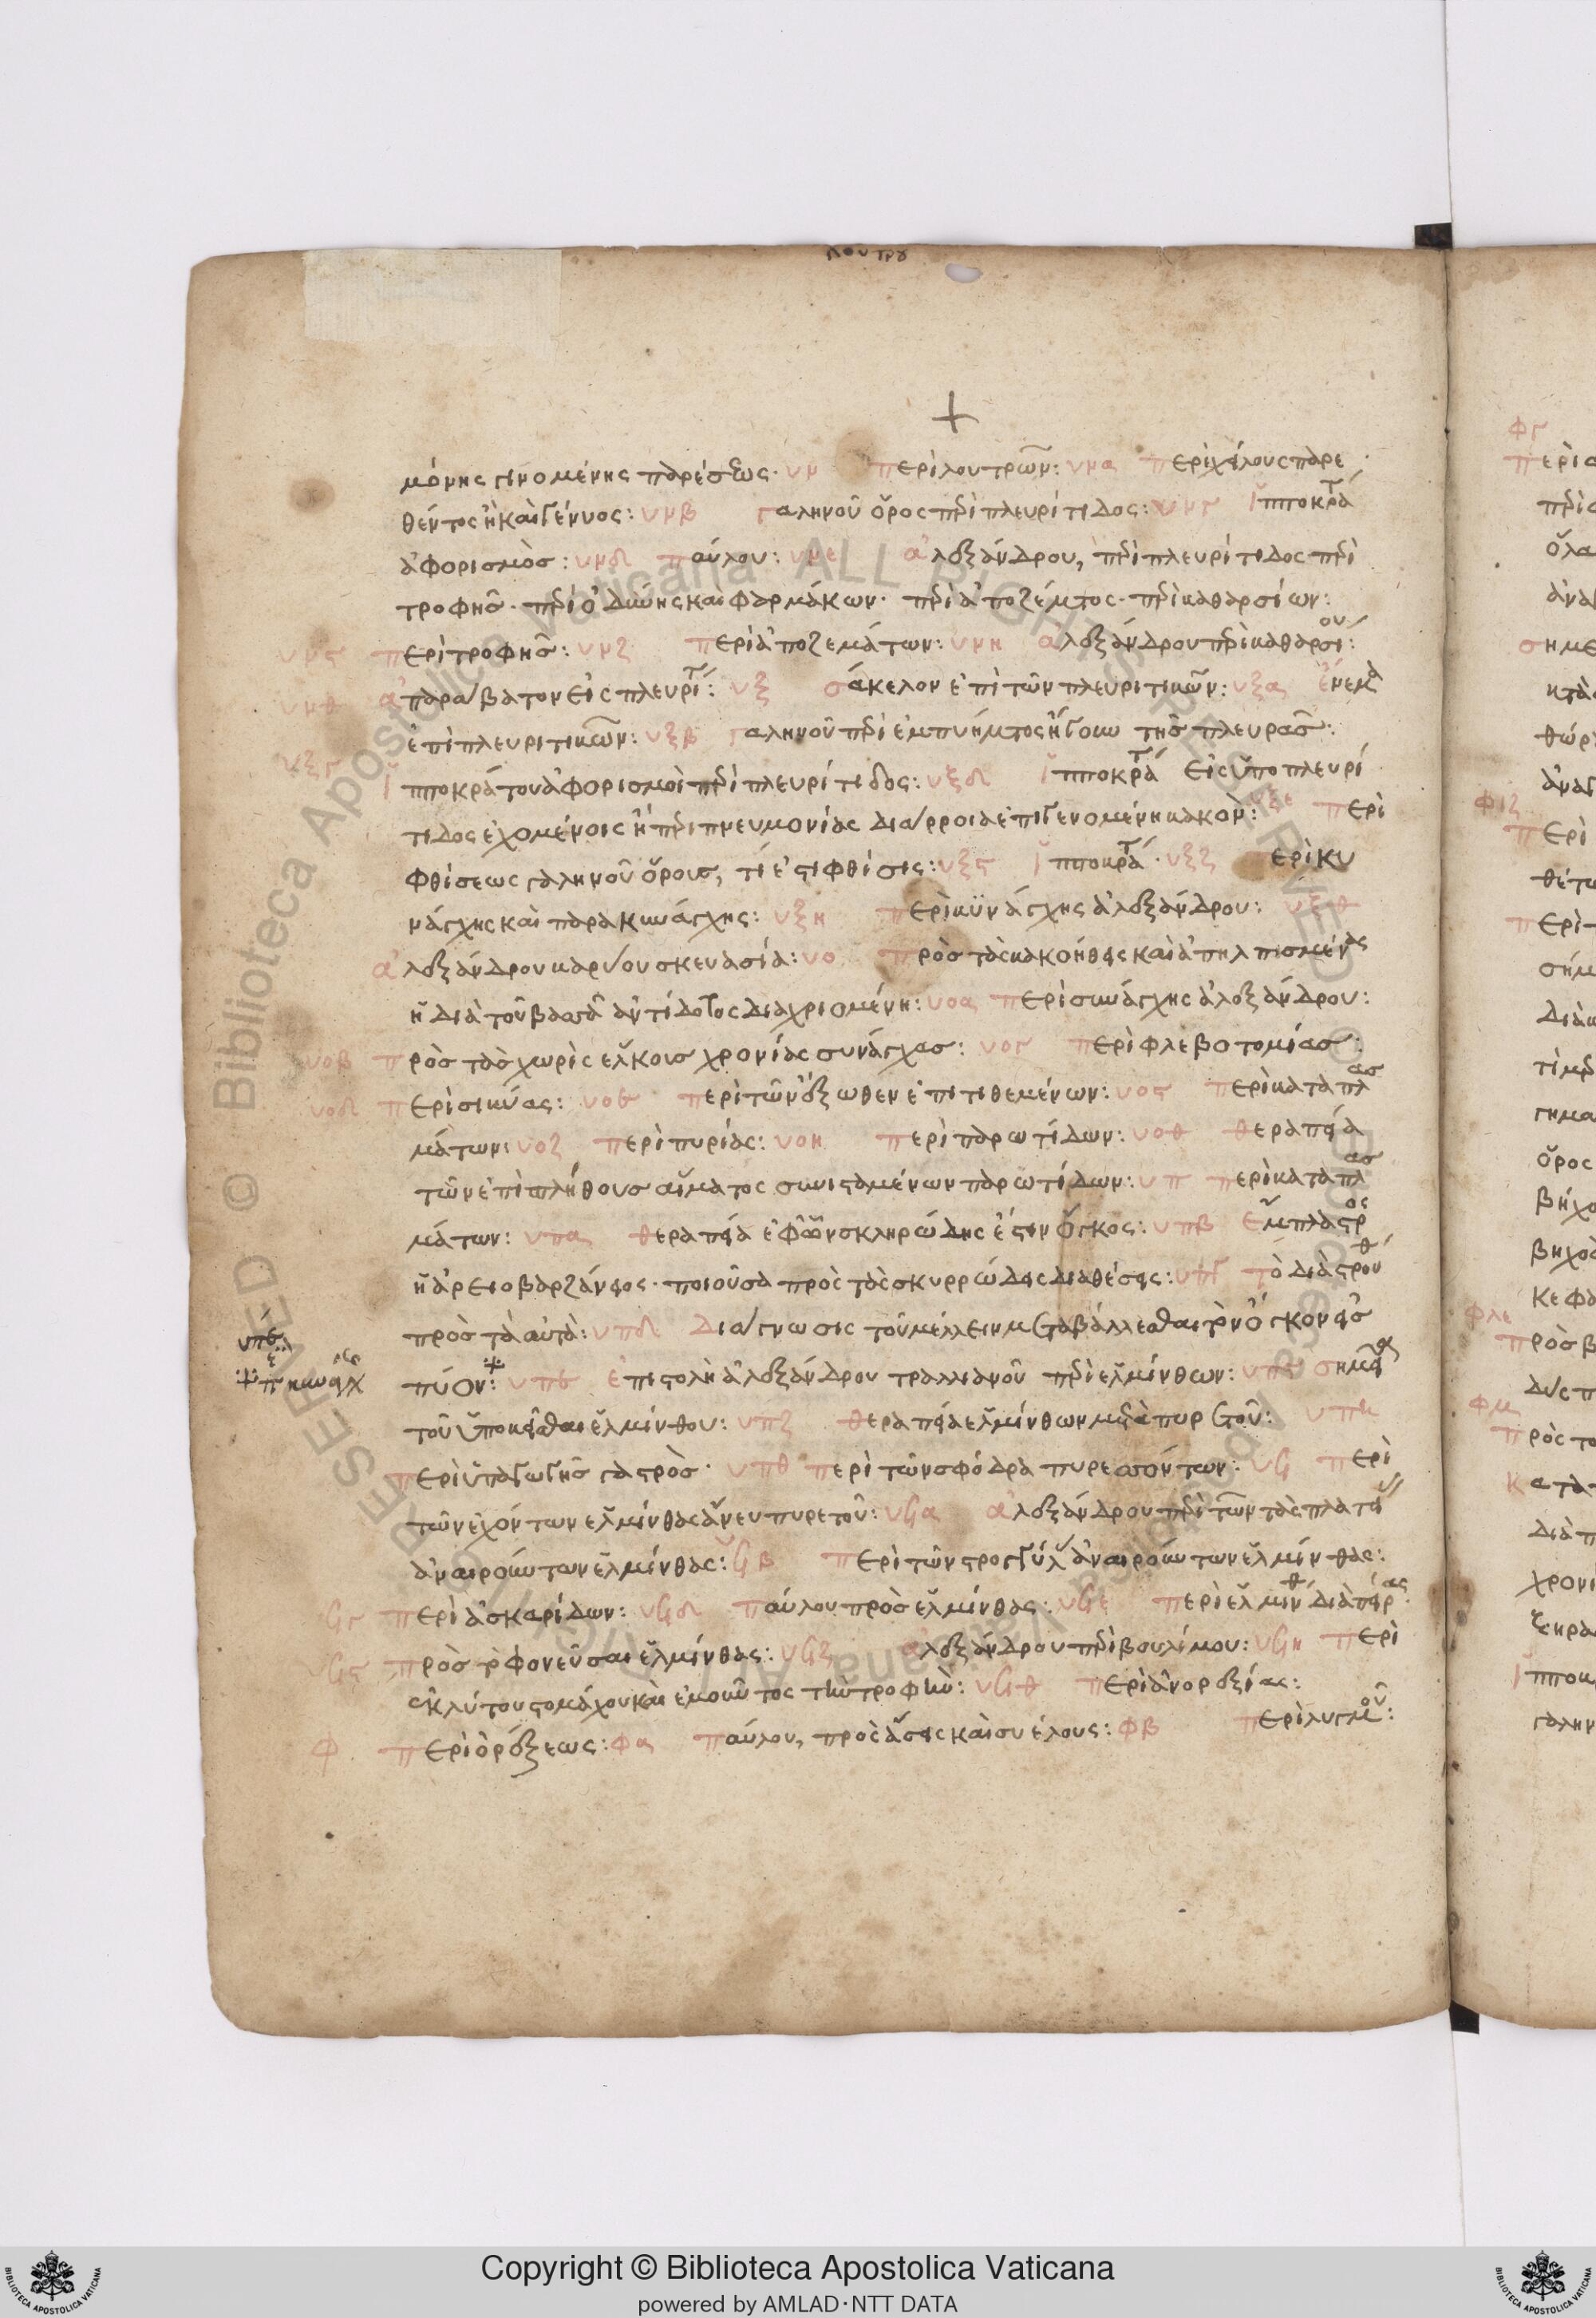 λουτρου
μόνης γινομένης παρέσεως· υν Περὶ λουτρῶν: υνα Περὶ χείλους παρε
θέντος ἢ καὶ γένυος: υνβ Γαληνοῦ ὅρος περὶ πλευρίτιδος: υνγ Ἱπποκρατ
ἀφορισμὸς: υνδ Παύλου: υνε Ἀλεξάνδρου, περὶ πλευρίτιδος περὶ
τροφῆς· περὶ ὀδύνης καὶ φαρμάκων· περὶ ἀποζέματος· περὶ καθαρσίων:
υνϛ Περὶ τροφῆς: υνζ Περὶ ἀποζεμάτων: υνη Ἀλεξάνδρου περὶ καθαρσίου:
υνθ ἀπαράβατον εἰς πλευριτ: υξ σάκελον ἐπὶ τῶν πλευριτικῶν: υξα
ἐπὶ πλευριτικῶν: υξβ Γαληνοῦ περὶ ἐμπυήματος ἤγουν τῆς πλευρᾶς:
υξγ Ἱπποκράτου ἀφορισμοὶ περὶ πλευρίτιδος: υξδ Ἱπποκρατ Εἰς ὑπὸ πλευρί
τιδος ἐχομένοις ἢ περιπνευμονίας διάρροια ἐπιγενομένη κακὸν: υξε Περὶ
φθίσεως γαληνοῦ ὅρους, τί ἐστι φθίσις: υξϛ Ἱπποκρατ· υξζ Περὶ κυ
νάγχης καὶ παρακυνάγχης: υξη Περὶ κυνάγχης ἀλεξάνδρου: υξθ
Ἀλεξάνδρου καρύου σκευασία: υο Πρὸς τὰς κακοήθεις καὶ ἀπηλπισμένας
ἡ διὰ τοῦ βησασᾶ ἀντίδοτος διαχριομένη: υοα Περὶ συνάγχης ἀλεξάνδρου:
υοβ Πρὸς τὰς χωρὶς ἕλκους χρονίας συνάγχας: υογ Περὶ φλεβοτομίας:
υοδ Περὶ σικύας: υοε Περὶ τῶν ἔξωθεν ἐπιτιθεμένων: υοϛ Περὶ καταπλασ
μάτων: υοζ Περὶ πυρίας: υοη Περὶ παρωτίδων: υοθ Θεραπεία
τῶν ἐπὶ πλήθους αἵματος συνισταμένων παρωτίδων: υπ Περὶ καταπλασ
μάτων: υπα Θεραπεία ἐφ' ὧν σκληρώδης ἐστιν ὄγκος: υπβ Ἔμπλαστρος
ἡ ἀρειοβαρζάνειος· ποιοῦσα πρὸς τὰς σκυρρώδεις διαθέσεις: υπγ Τὸ διὰ
πρὸς τὰ αὐτὰ: υπδ Διάγνωσις τοῦ μέλλειν μεταβάλλεσθαι τὸν ὄγκον εἰς
πύον: υπε Ἐπιστολὴ ἀλεξάνδρου τραλλιανοῦ περὶ ἑλμίνθων: υπϛ σημεῖα
τοῦ ὑποκεῖσθαι ἕλμινθου: υπζ Θεραπεία ἑλμίνθων μετὰ πυρετοῦ: υπη
Περὶ ὑπαγωγῆς γαστρὸς· υπθ Περὶ τῶν σφόδρα πυρεσσόντων: υϟ Περὶ
τῶν ἐχόντων ἕλμινθας ἄνευ πυρετοῦ: υϟα Ἀλεξάνδρου περὶ τῶν τὰς πλατεί
ἀναιρούντων ἕλμινθας: υϟβ Περὶ τῶν στρογγύλ ἀναιρούντων ἕλμινθας:
υϟγ Περὶ ἀσκαρίδων: υϟδ Παύλου πρὸς ἕλμινθας: υϟε Περὶ ἑλμίνθ διὰ πείρας
υϟϛ Πρὸς τὸ φονεῦσαι ἕλμινθας: υϟζ Ἀλεξάνδρου περὶ βουλίμου: υϟη Περὶ
ἐκλύτου στομάχου καὶ ἐμοῦντος τὴν τροφὴν: υϟθ Περὶ ἀνορεξίας:
φ Περὶ ὀρέξεως: φα Παύλου, πρὸς ἄσεις καὶ συέλους: φβ Περὶ λυγμοῦ:
Copyright © Biblioteca Apostolica Vaticana
powered by AMLAD·NTT DATA